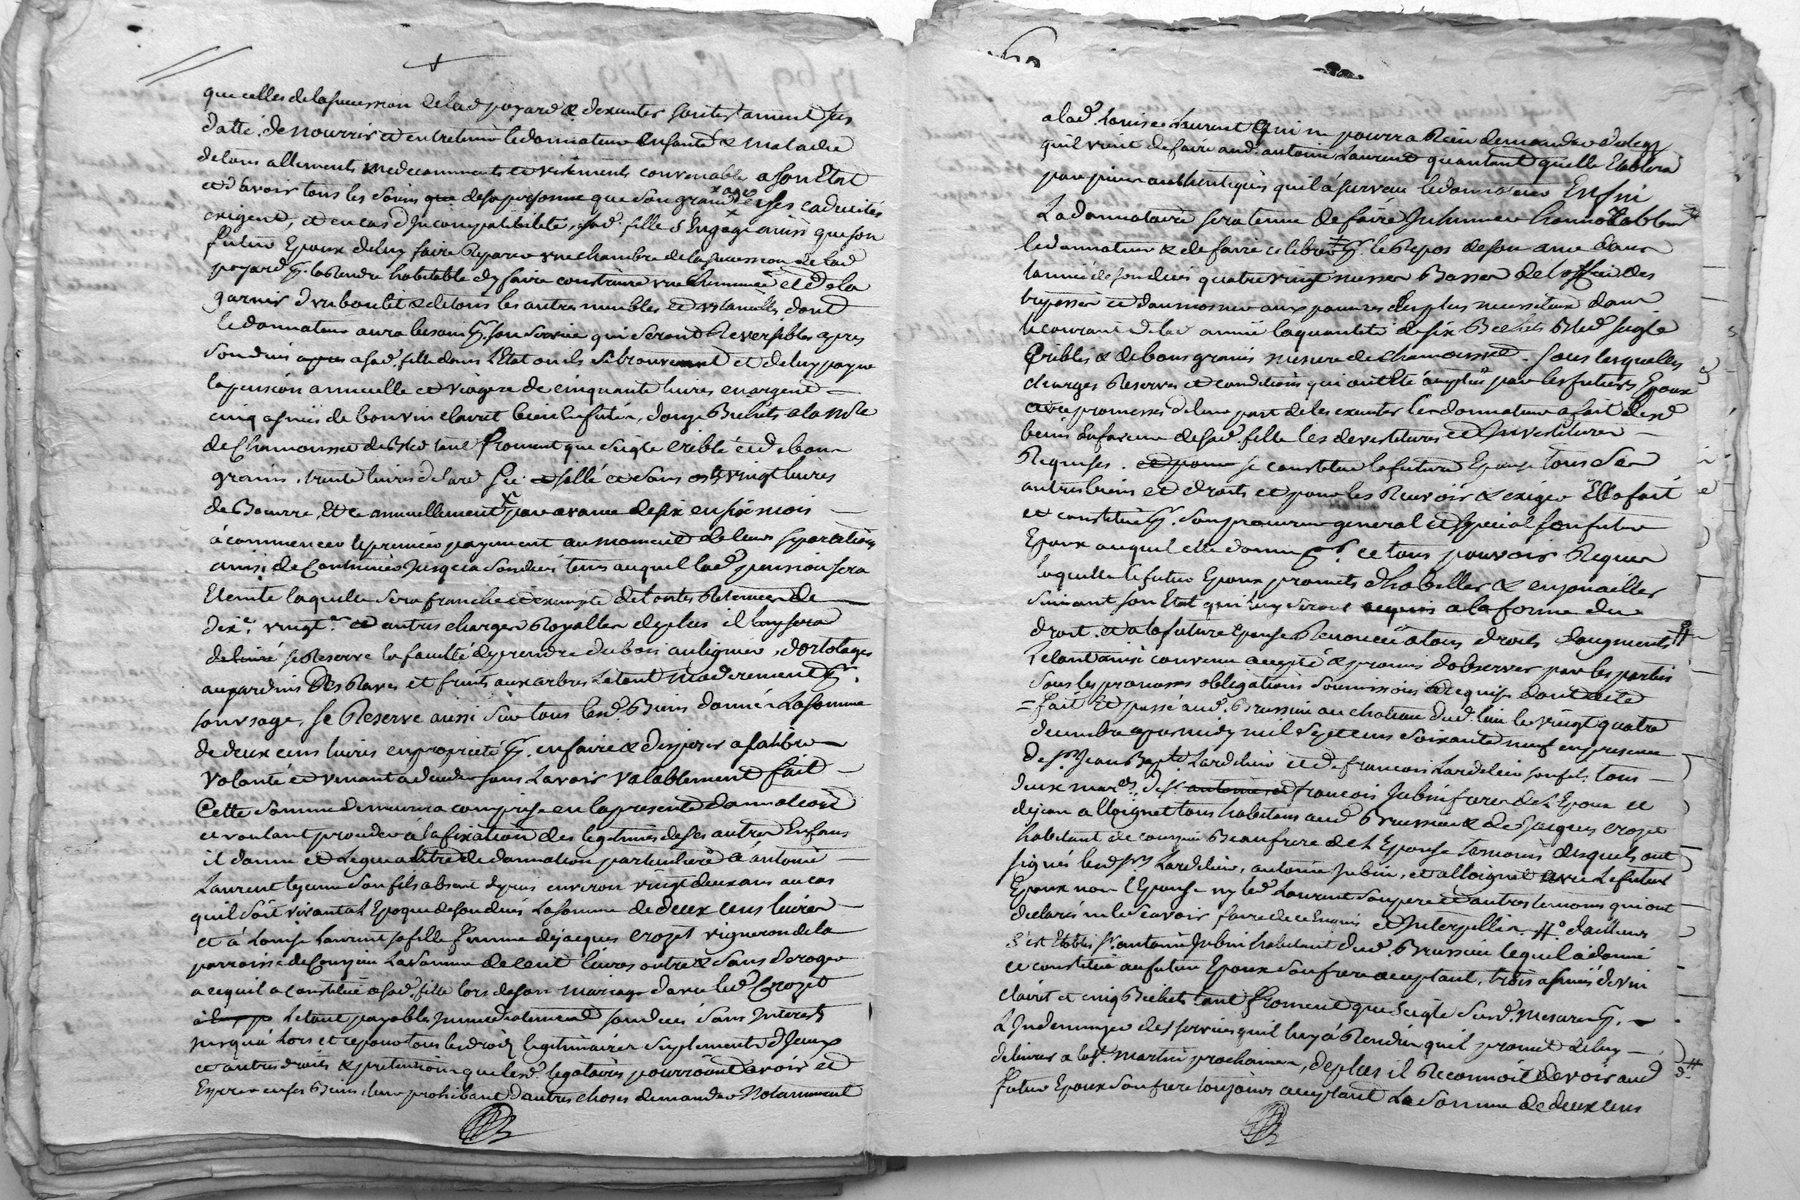 que celles de la succession de lad poyard & dexecuter son testament sus
datté, de nourrir et entretenir le donnateur en santé & maladie
de tous alliments medicaments et vetements convenable a son Etat
et d'avoir tous les soins que de sa personne que son grand age et ses caducités
exigent, et en cas d'Incompatibilité, sad. fille S'Engage ainsi que son
futur Epoux de luy faire Reparer une chambre de la succession de lad
poyard pr. la Rendre habitable dy faire construire une cheminée et de la
garnir d'un boulit & de tous les autres meubles et ustancilles dont
le donnateur aura besoin pr. son service qui seront Reversibles apres
son deces apres a sad. fille dans l'Etat ou ils se trouveront et de luy payer
la pension annuelle et viagere de cinquante livres en argent
cinq asnées de bon vin clairet bien le futée, douze Bichets a la mre
de Chamousset de Bled tant froment que seigle criblé et de bon
grains, trente livres de lard sec et sallé et sans os & vingt livres
de Beurre, Et ce annuellement par avance de six en six mois
à commencer le premier payement au moment de leur separation
ainsi de Continuer Jusqu'a son deces tems auquel lad. pension sera
Eteinte laquelle sera franche et exempte de toutes Retenues de
dixe. vingte. et autres charges Royalles de plus il luy sera
delivré se Reserve la faculté dy prendre du bois au ligner, d'ortolages
au jardin des Raves et fruits aux arbres le tout moderement pr.
son usage, se Reserve aussi sur tous lesd. Biens donnés La somme
de deux cens livres en proprieté pr. en faire & disposer a sa libre
volonté et venant a deceder sans L'avoir valablement fait
Cette somme demeurera comprise en la presente donnation
et voulant proceder à la fixation des legitimes de ses autres Enfans
il donne et Legue a titre de donnation particuliere à Antoine
Laurent le jeune son fils absent depuis environ vingt deux ans au cas
quil soit vivant a L'Epoque de son deces La somme de deux cens livres
et à Louise Laurent sa fille femme de jacques Crozet vigneron de la
parroisse de Courzieu La somme de cent livres outre & sans deroger
a ce quil a constitué a sad. fille lors de son mariage d'avec led. Crozet
Le tout payables Immediatement son deces sans Interets
jusqu'à lors et ce pour tous les droits legitimaires suplements d'Iceux
et autres droits & pretentions que lesd. legataires pourroient avoir et
Esperer en ses Biens, leur prohibant d'autres choses demander Notamment
a lad. Louise Laurent qui ne pourra Rien demander du legs
quil vient de faire aud. antoine Laurent quautant quelle Etablira
par pieces authentiques quil a survecu le donnateur Enfin
La donnataire sera tenue de faire Inhumer honnorablemt
le donnateur & de faire celebrer pr. le Repos de son ame dans
l'année de son deces quatre vingt messes Basses de l'office des
trepassés et daumosner aux pauvres les plus necessiteux dans
le courant de lad. année la quantité de six Bichets Bled seigle
Criblés & de bons grains mesure de Chamousset. Sous lesquelles
charges Reserves et conditions qui ont été acceptées par les futurs Epoux
avec promesses de leur part de les executer le donnateur a fait desd.
biens En faveur de sad. fille les devestitures et Investitures
Requises. et pour se constitue la future Epouse tous Ses
autres biens et droits et pour les Recevoir & exiger Elle fait
et constitue pr. son procureur general et special son futur
Epoux auquel elle donne pr. ce tous pouvoirs Requis
laquelle le futur Epoux promet d'habiller & enjouailler
suivant son Etat qui luy seront acquis a la forme du
droit. et a la future Epouse Renoncé à tous droits d'augments
le tout ainsi convenu accepté & promis d'observer par les parties
sous les promesses obligations soumissions & Requises dont acte
fait et passé aud. Brussieu au chateau dud. lieu le vingt quatre
decembre apres midy mil sept cens soixante neuf en presence
de Sr. Jean Bapte. Lardelier et de francois Lardelier son fils, tous
deux mards. de Sr. antoine et francois Jubin frere de l'Epoux et
de jean alloignet tous habitans aud. Brussieu & de Jacques crozet
habitant de courzieu Beaufrere de l'Epouse temoins desquels ont
signés lesd. Srs. Lardelier, antoine Jubin, et alloignet avec le futur
Epoux non l'Epouse ny led. Laurent son pere et autres temoins qui ont
declarés ne le scavoir faire de ce Enquis et Interpellés. d'ailleurs
s'est Etabli Sr. antoine Jubin habitant dud. Brussieu lequel a donné
et constitué au futur Epoux son frere acceptant, trois asnées de vin
clairet et cinq Bichets tant froment que seigle susd. mesure pr.
L'Indemniser des services quil luy à Rendu quil promet de luy
delivrer a la St. martin prochaine, de plus il Reconnoit devoir aud
futur Epoux son frere toujours acceptant La somme de deux cens